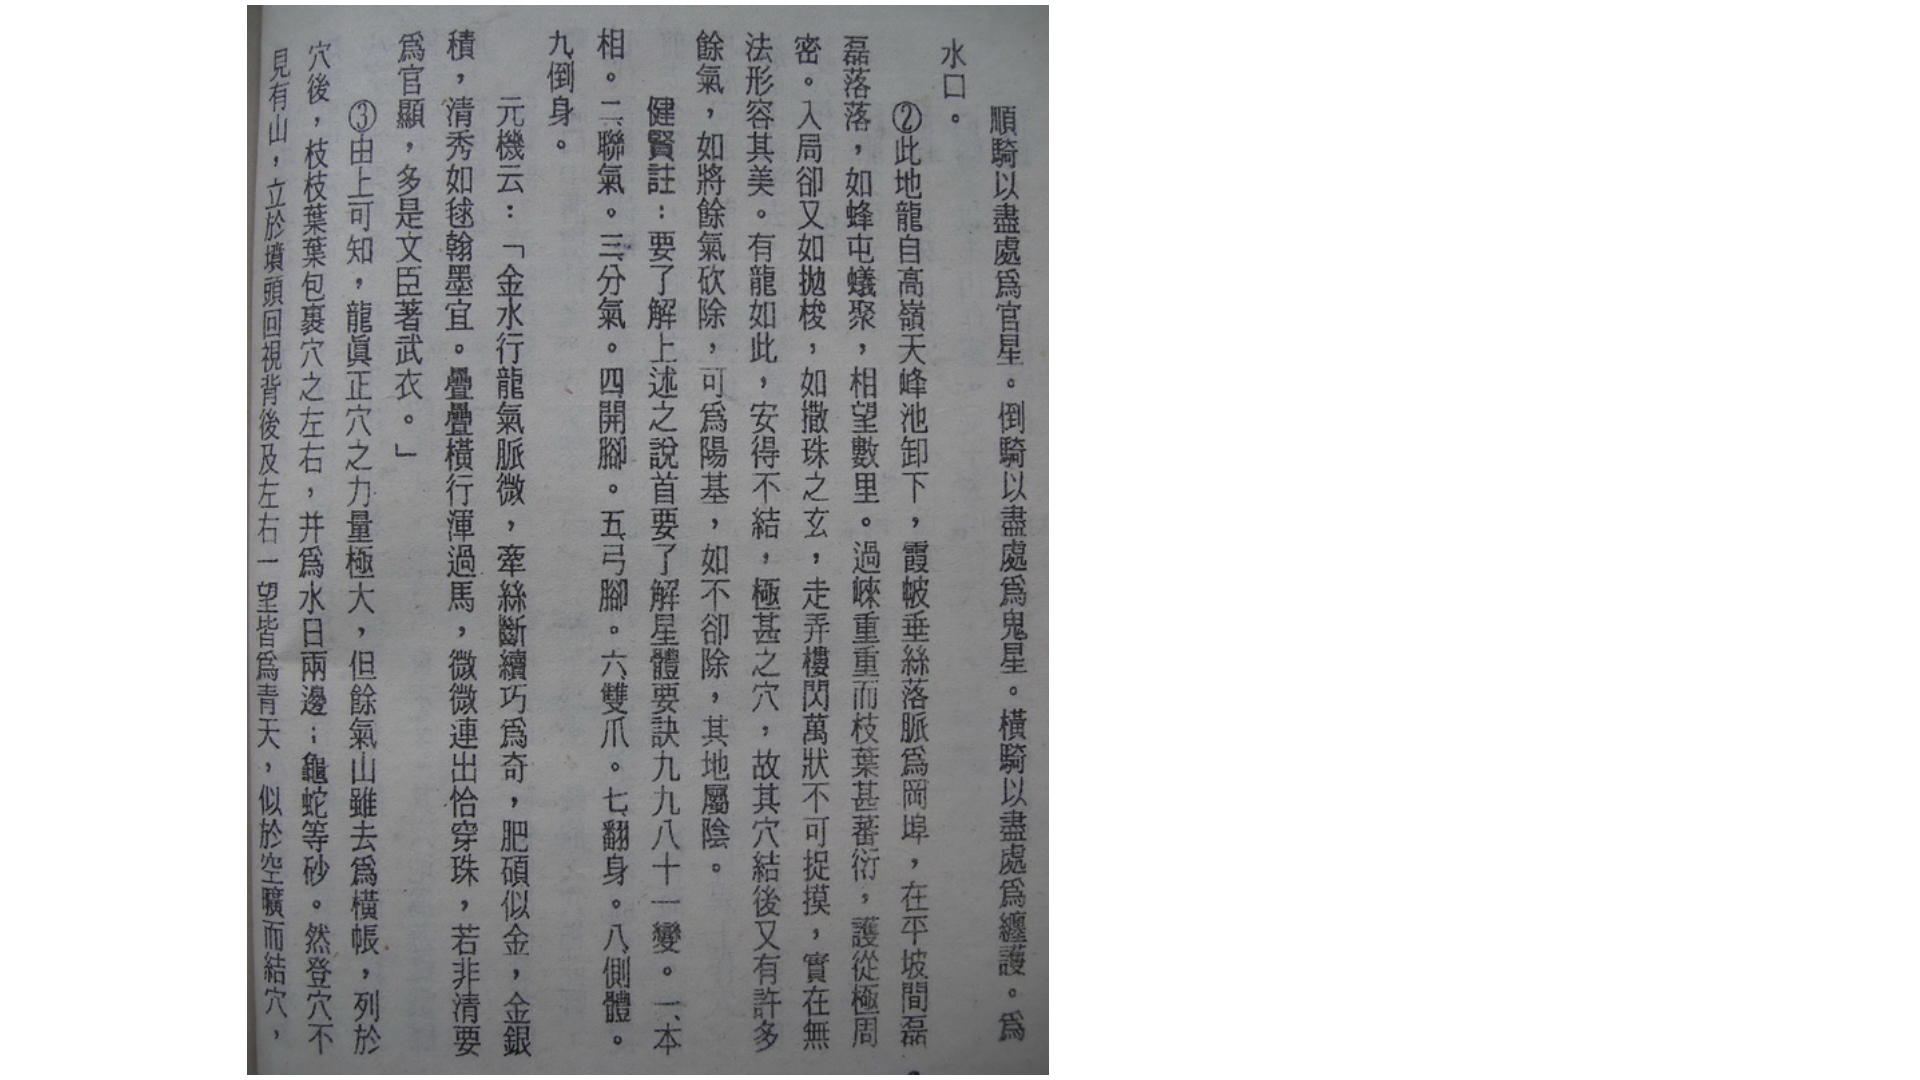 順騎以盡處爲官星。倒騎以盡處爲鬼星。橫騎以盡處爲纏護。爲
水口。
②此地龍自高嶺天峰池卸下，霞帔垂絲落脈爲岡埠，在平坡間磊
磊落落，如蜂屯蟻聚，相望數里。過崠重重而枝葉甚蕃衍，護從極周
密。入局卻又如拋梭，如撒珠之玄，走弄樓閃萬狀不可捉摸，實在無
法形容其美。有龍如此，安得不結，極甚之穴，故其穴結後又有許多
餘氣，如將餘氣砍除，可爲陽基，如不卻除，其地屬陰。
健賢註：要了解上述之說首要了解星體要訣九九八十一變。一、本
相。二、聯氣。三、分氣。四、開腳。五、弓腳。六、雙爪。七、翻身。八、側體。
九、倒身。
元機云：「金水行龍氣脈微，牽絲斷續巧爲奇，肥碩似金，金銀
積，清秀如毬翰墨宜。疊疊橫行渾過馬，微微連出恰穿珠，若非清要
爲官顯，多是文臣著武衣。」
③由上可知，龍眞正穴之力量極大，但餘氣山雖去爲橫帳，列於
穴後，枝枝葉葉包裹穴之左右，并爲水日兩邊；龜蛇等砂。然登穴不
見有山，立於墳頭回視背後及左右一望皆爲青天，似於空曠而結穴，